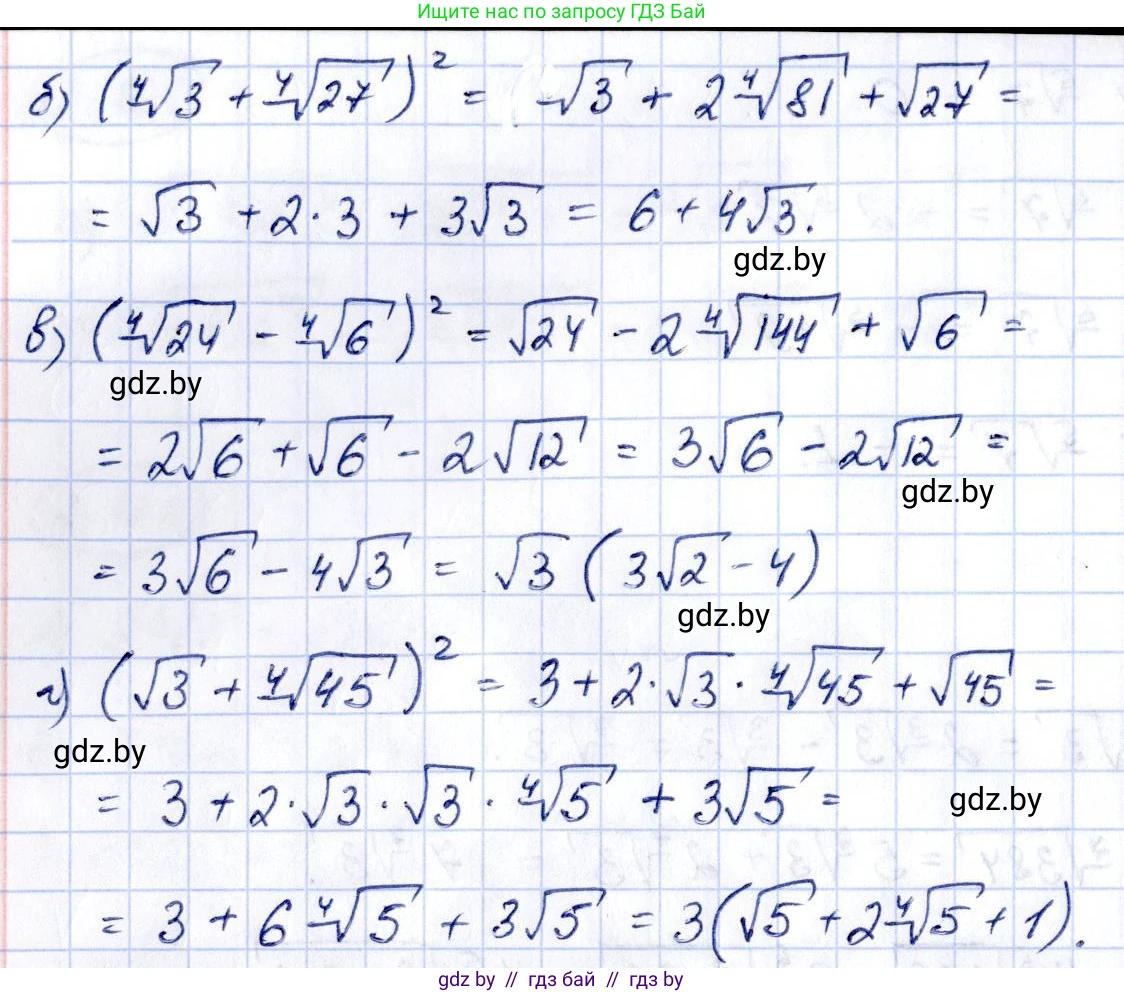 Ищите нас по запросу ГДЗ Бай
б) (⁴√3 + ⁴√27)² = √3 + 2⁴√81 + √27 =
= √3 + 2·3 + 3√3 = 6 + 4√3.
gdz.by
в) (⁴√24 - ⁴√6)² = √24 - 2⁴√144 + √6 =
gdz.by
= 2√6 + √6 - 2√12 = 3√6 - 2√12 =
gdz.by
= 3√6 - 4√3 = √3 (3√2 - 4)
gdz.by
г) (√3 + ⁴√45)² = 3 + 2·√3·⁴√45 + √45 =
gdz.by
= 3 + 2·√3·√3·⁴√5 + 3√5 =
gdz.by
= 3 + 6⁴√5 + 3√5 = 3(√5 + 2⁴√5 + 1).
gdz.by // гдз бай // гдз by